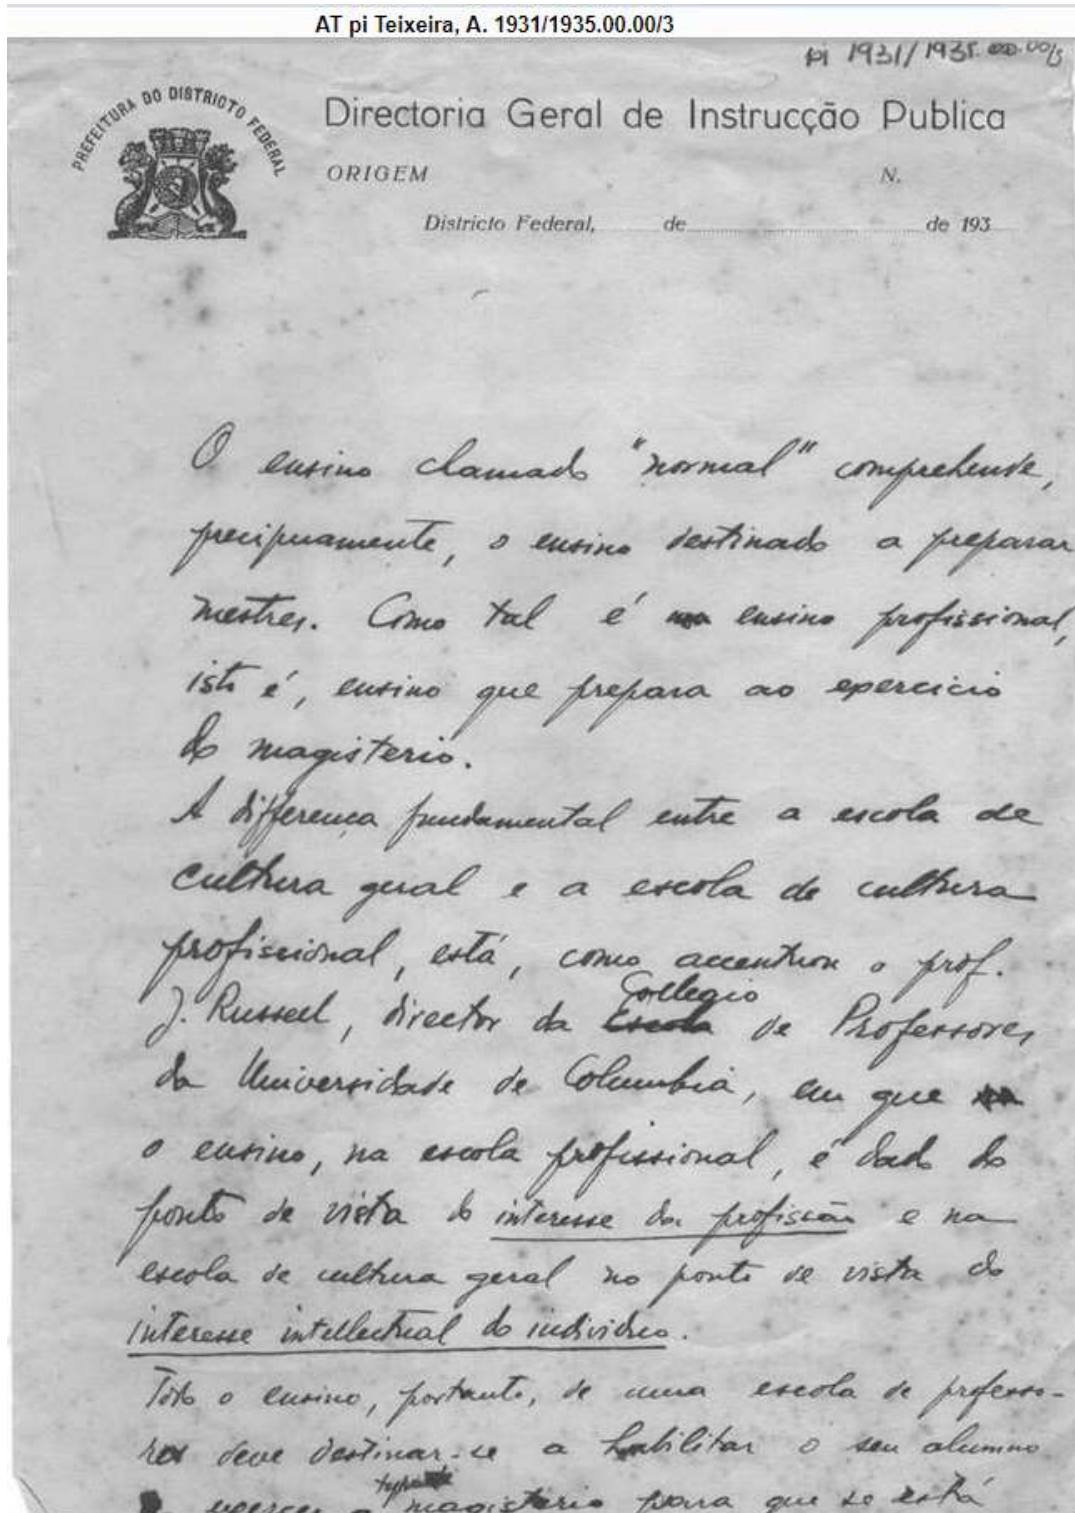 AT pi Teixeira, A. 1931/1935.00.00/3
pi 1931/1935.00.00/3
PREFEITURA DO DISTRICTO FEDERAL
Directoria Geral de Instrucção Publica
ORIGEM N.
Districto Federal, de de 193
O ensino chamado "normal" comprehende,
precipuamente, o ensino destinado a preparar
mestres. Como tal é ensino profissional,
isto é, ensino que prepara ao exercicio
do magisterio.
A differença fundamental entre a escola de
cultura geral e a escola de cultura
profissional, está, como accentuou o prof.
J. Russell, director da Escola Collegio de Professores
da Universidade de Columbia, em que
o ensino, na escola profissional, é dado do
ponto de vista do interesse da profissão e na
escola de cultura geral no ponto de vista do
interesse intellectual do individuo.
Todo o ensino, portanto, de uma escola de professo-
res deve destinar-se a habilitar o seu alumno
exercer o magisterio para que se está